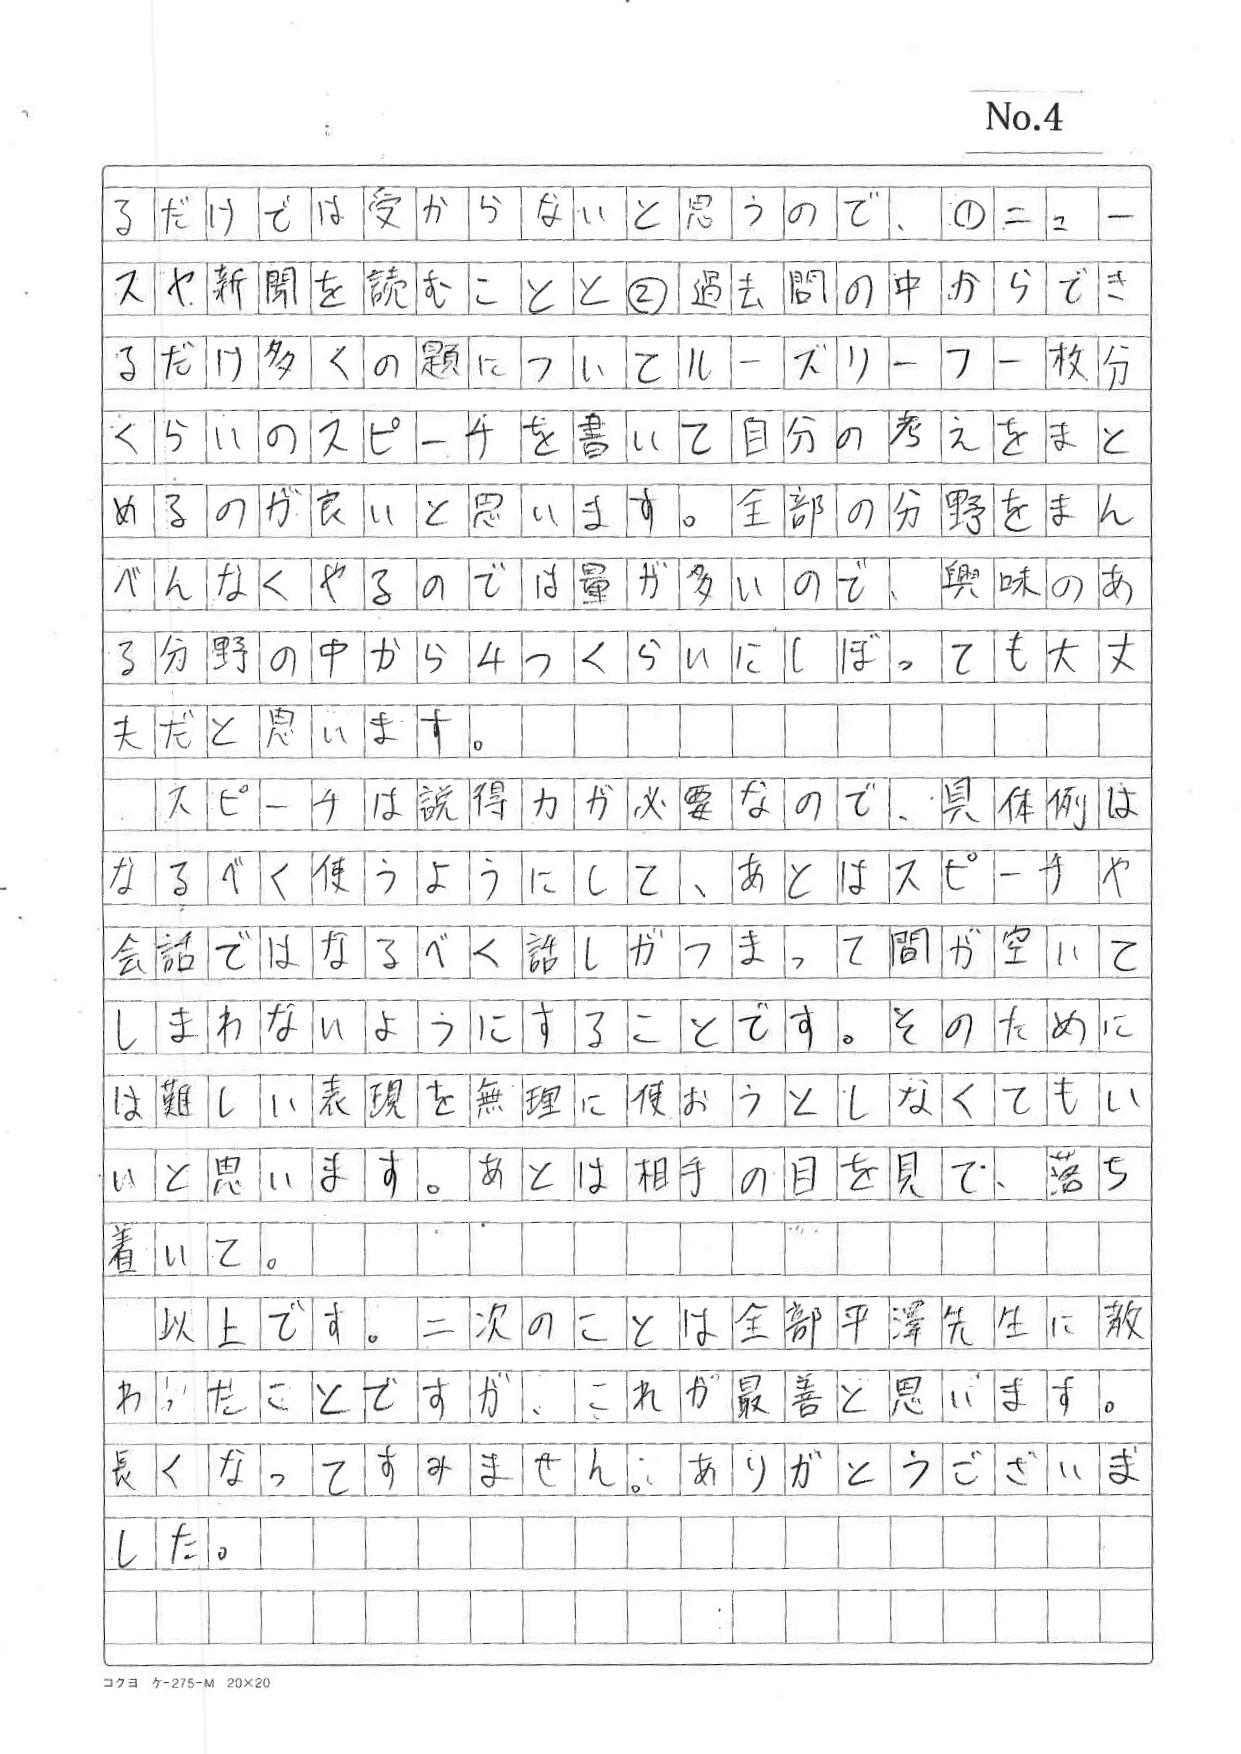 No.4
るだけでは受からないと思うので、①ニュー
スや新聞を読むことと②過去問の中からでき
るだけ多くの題についてルーズリーフ一枚分
くらいのスピーチを書いて自分の考えをまと
めるのが良いと思います。全部の分野をまん
べんなくやるのでは量が多いので、興味のあ
る分野の中から4つくらいにしぼっても大丈
夫だと思います。
スピーチは説得力が必要なので、具体例は
なるべく使うようにして、あとはスピーチや
会話ではなるべく話しがつまって間が空いて
しまわないようにすることです。そのために
は難しい表現を無理に使おうとしなくてもい
いと思います。あとは相手の目を見て、落ち
着いて。
以上です。二次のことは全部平澤先生に教
わったことですが、これが最善と思います。
長くなってすみません。ありがとうございま
した。
コクヨ ケ-275-M 20×20